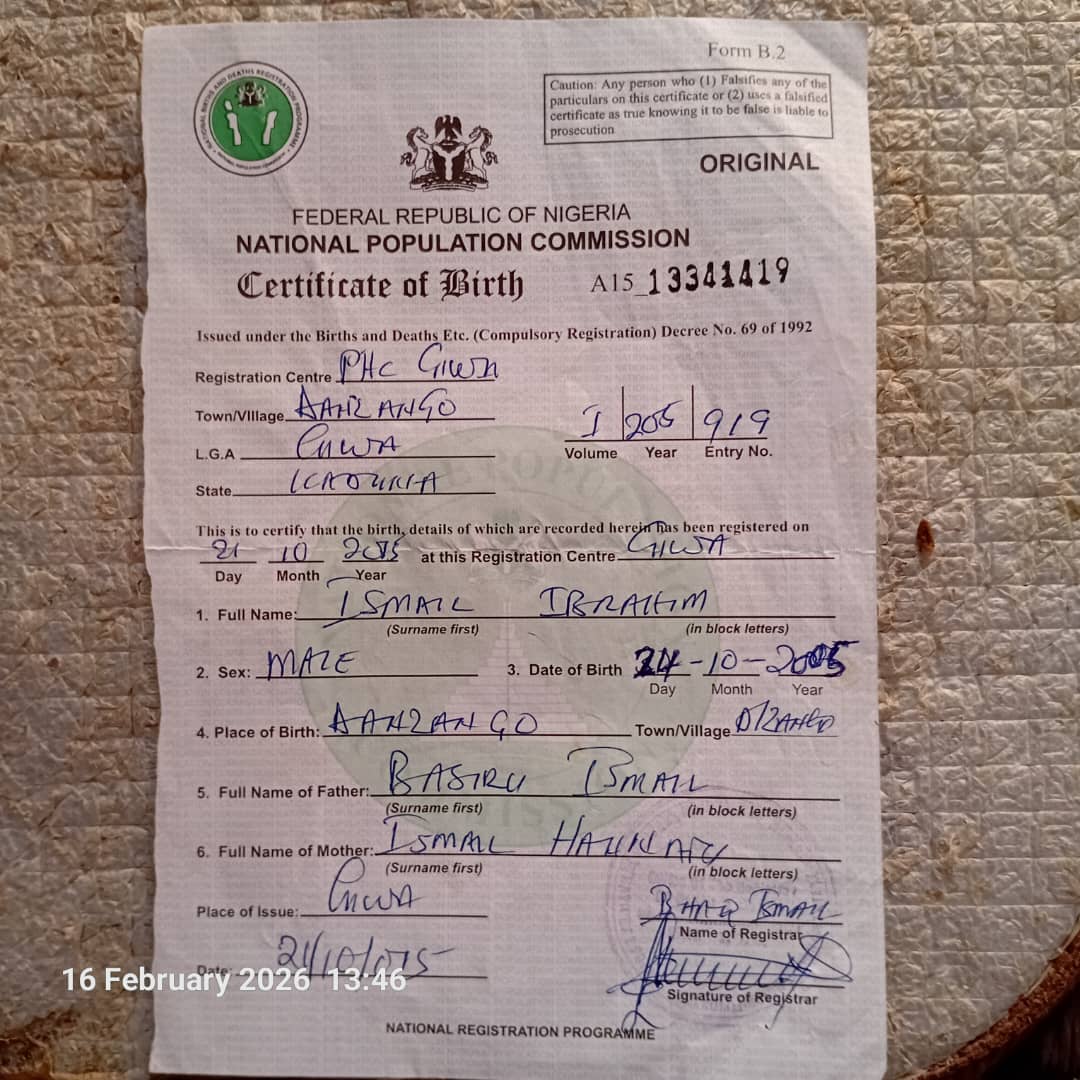 Form B.2
NATIONAL BIRTHS AND DEATHS REGISTRATION PROGRAMME
Caution: Any person who (1) Falsifies any of the
particulars on this certificate or (2) uses a falsified
certificate as true knowing it to be false is liable to
prosecution
ORIGINAL
FEDERAL REPUBLIC OF NIGERIA
NATIONAL POPULATION COMMISSION
Certificate of Birth A15_13341419
Issued under the Births and Deaths Etc. (Compulsory Registration) Decree No. 69 of 1992
Registration Centre PHC GIWA
Town/Village
I 919
L.G.A GIWA
Volume Year Entry No.
State KADUNA
This is to certify that the birth, details of which are recorded herein has been registered on
21 10 at this Registration Centre GIWA
Day Month Year
1. Full Name: ISMAIL IBRAHIM
(Surname first) (in block letters)
2. Sex: MALE 3. Date of Birth -10-
Day Month Year
4. Place of Birth: Town/Village
5. Full Name of Father: BASIRU ISMAIL
(Surname first) (in block letters)
6. Full Name of Mother: ISMAIL
(Surname first) (in block letters)
Place of Issue: GIWA
ISMAIL
Name of Registrar
Date: 21/10/
16 February 2026 13:46
Signature of Registrar
NATIONAL REGISTRATION PROGRAMME